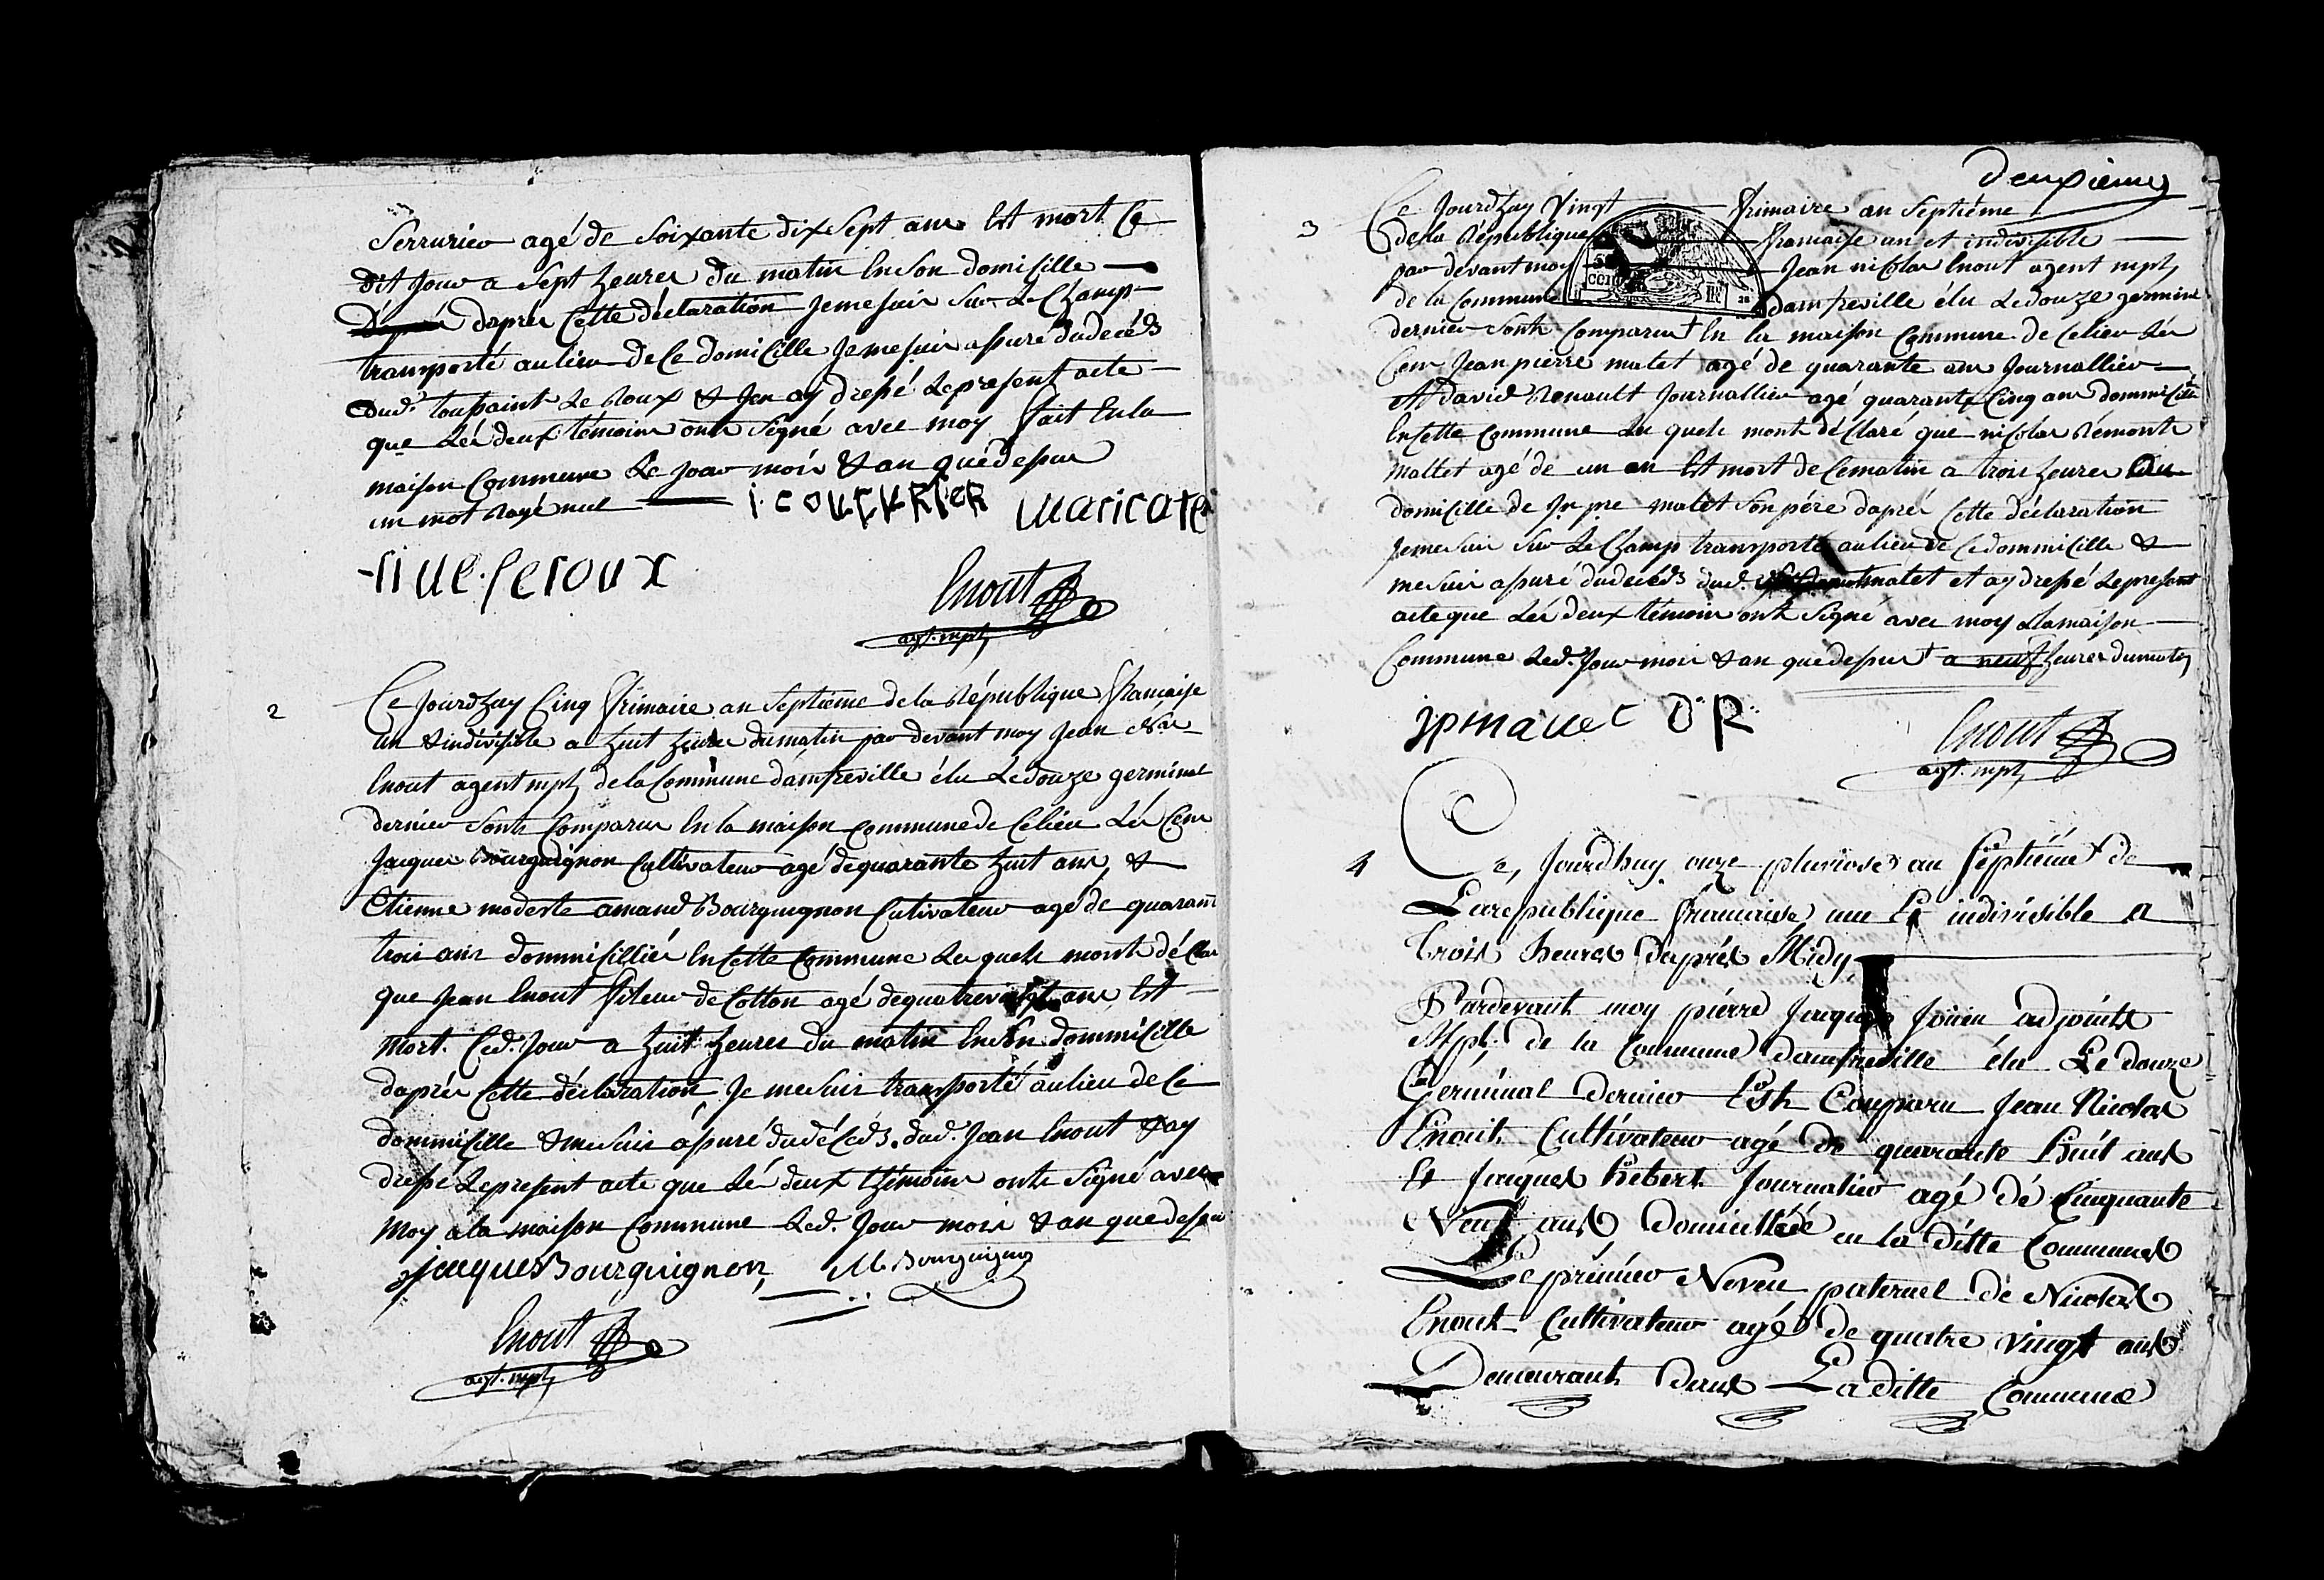 Serrurier agé de Soixante dix Sept ans Est mort Ce
dit Jour a Sept heures du matin En Son domicille
daprés Cette déclaration Je me suis Sur Le Champ
transporté au lieu de Ce domicille Je me suis assuré du decéds
dud. toussaint Le Roux & Jen ay dressé Le present acte
que Les deux témoins ont Signé avec moy fait En la
maison Commune Le Jour mois & an que dessus
un mot Rayé nul
Enout
agt. mpl
2
Ce Jourdhuy Cinq frimaire an Septième de la République francaise
un & indivisible a huit heures du matin par devant moy Jean Nas
Enout agent mpl de la Commune damfreville élu Le douze germinal
dernier Sont Comparus En la maison Commune de Ce lieu Les Cens
Jacques Bourguignon Cultivateur agé de quarante huit ans, &
Etienne modeste amand Bourguignon Cutivateur agé de quarante
trois ans dommicilliés En Cette Commune Les quels mont déClaré
que Jean Enout fileur de Cotton agé de quatre vingt ans Est
mort. Ced. Jour a huit heures du matin En Son dommicille
daprés Cette déclaration Je me suis transporté au lieu de Ce
dommicille & me suis assuré du déCeds. dud. Jean Enout & ay
dressé Le present acte que Les deux thémoins ont Signé avec
moy a la maison Commune Led. Jour mois & an que dessus
jacques Bourguignon, M. Bourguignon
Enout
agt. mpl
deuxieme
3
Ce Jourdhuy Vingt frimaire an Septième
de la République francaise un et indivisible
par devant moy Jean nicolas Enout agent mpl
de la Commune damfreville élu Le douze germinal
dernier Sont Comparus + En la maison Commune de Ce lieu Les
Cens Jean pierre malet agé de quarante ans Journallier
Et david Renault Journallier agé quarante Cinq ans dommicilié
En Cette Commune Les quels mont déClaré que nicolas Rémont
mallet agé de un an Est mort de Ce matin a trois heures Au
domicille de Jn pre malet Son pére daprés Cette déclaration
Je me suis Sur Le Champ transporté au lieu de Ce dommicille &
me suis assuré du decéds dud. malet et ay dressé Le present
acte que Les deux témoins ont Signé avec moy a La maison
Commune Led. Jour mois & an que dessus + a neuf heures du matin
D R
Enout
agt. mpl
4
Ce, Jourdhuy onze pluviose an Séptiéme de
La republique francaise une Et indivisible a
Trois heures daprés Midy
Pardevant moy piérre Jacques Joüen adjoint
Mpl. de la Commune damfreville élu Le douze
Gérminal dernier Est Comparu Jean Nicolas
Enout Cultivateur agé de quarante huit ans
Et Jacques hebert Journalier agé dé Cinquante
Neuf ans Domicilliée en la ditte Commune
Le prémier Neveu paternel de Nicolas
Enout Cultivateur agé de quatre vingt ans
Demeurant dans La ditte Commune